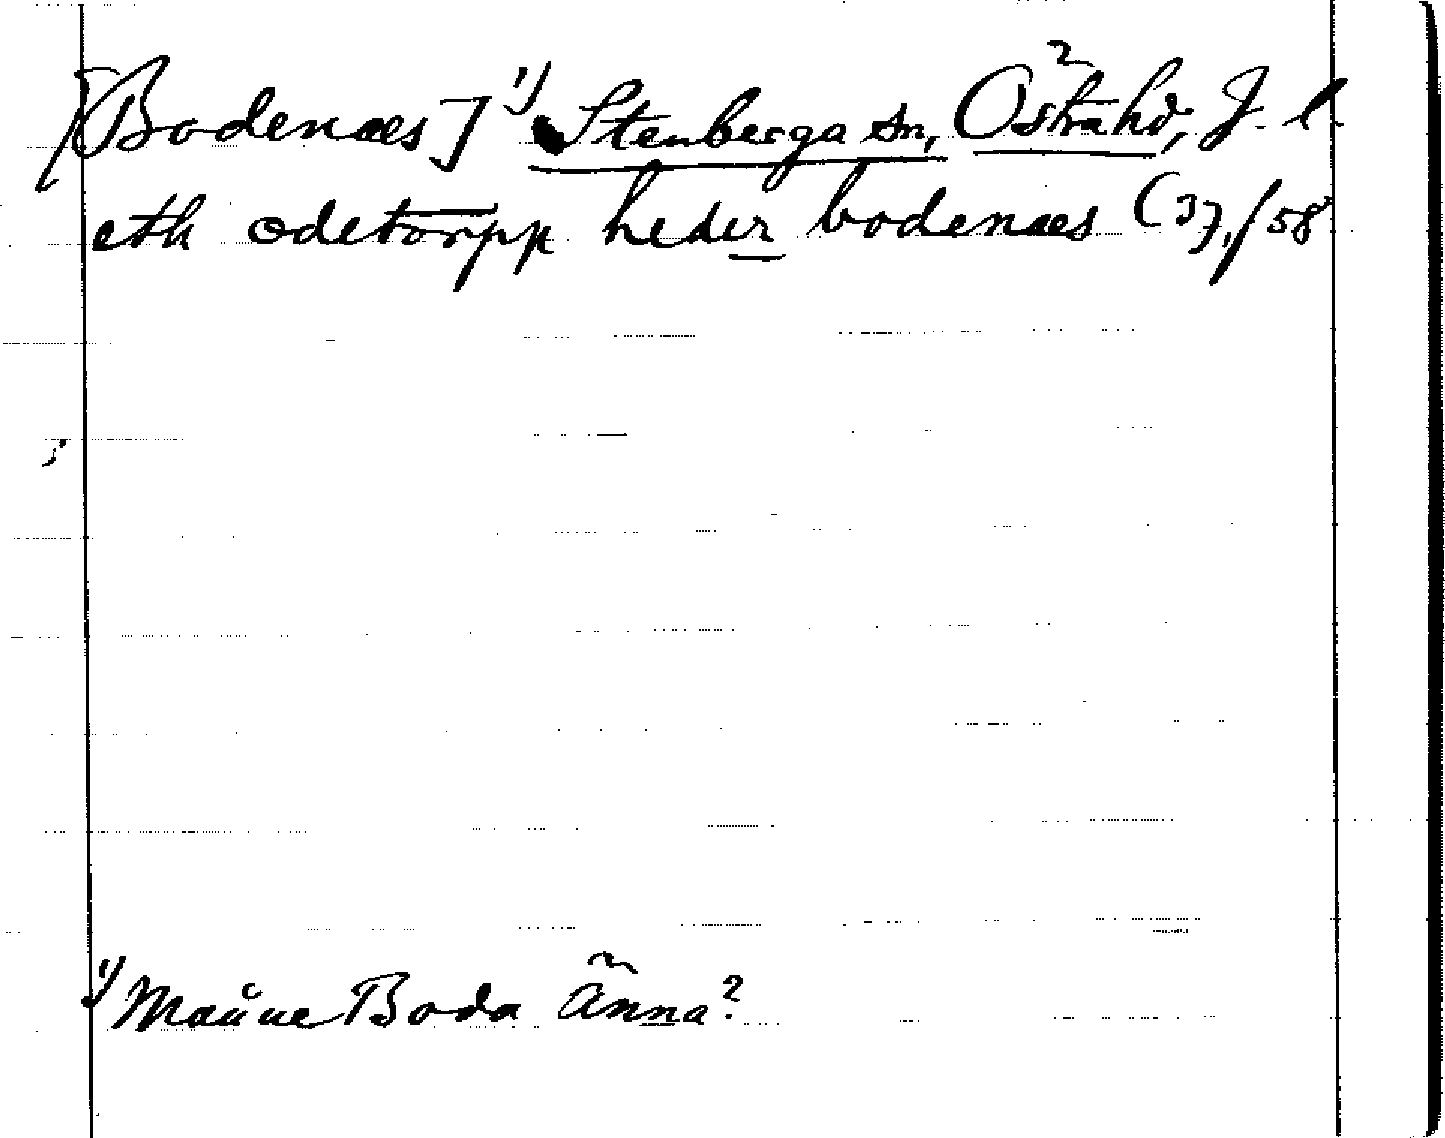 [Bodenæs] 1) Stenberga sn, Östra hd, J. l.
eth ödetorpp heder bodenæs (37,/58
1) Boda änna?